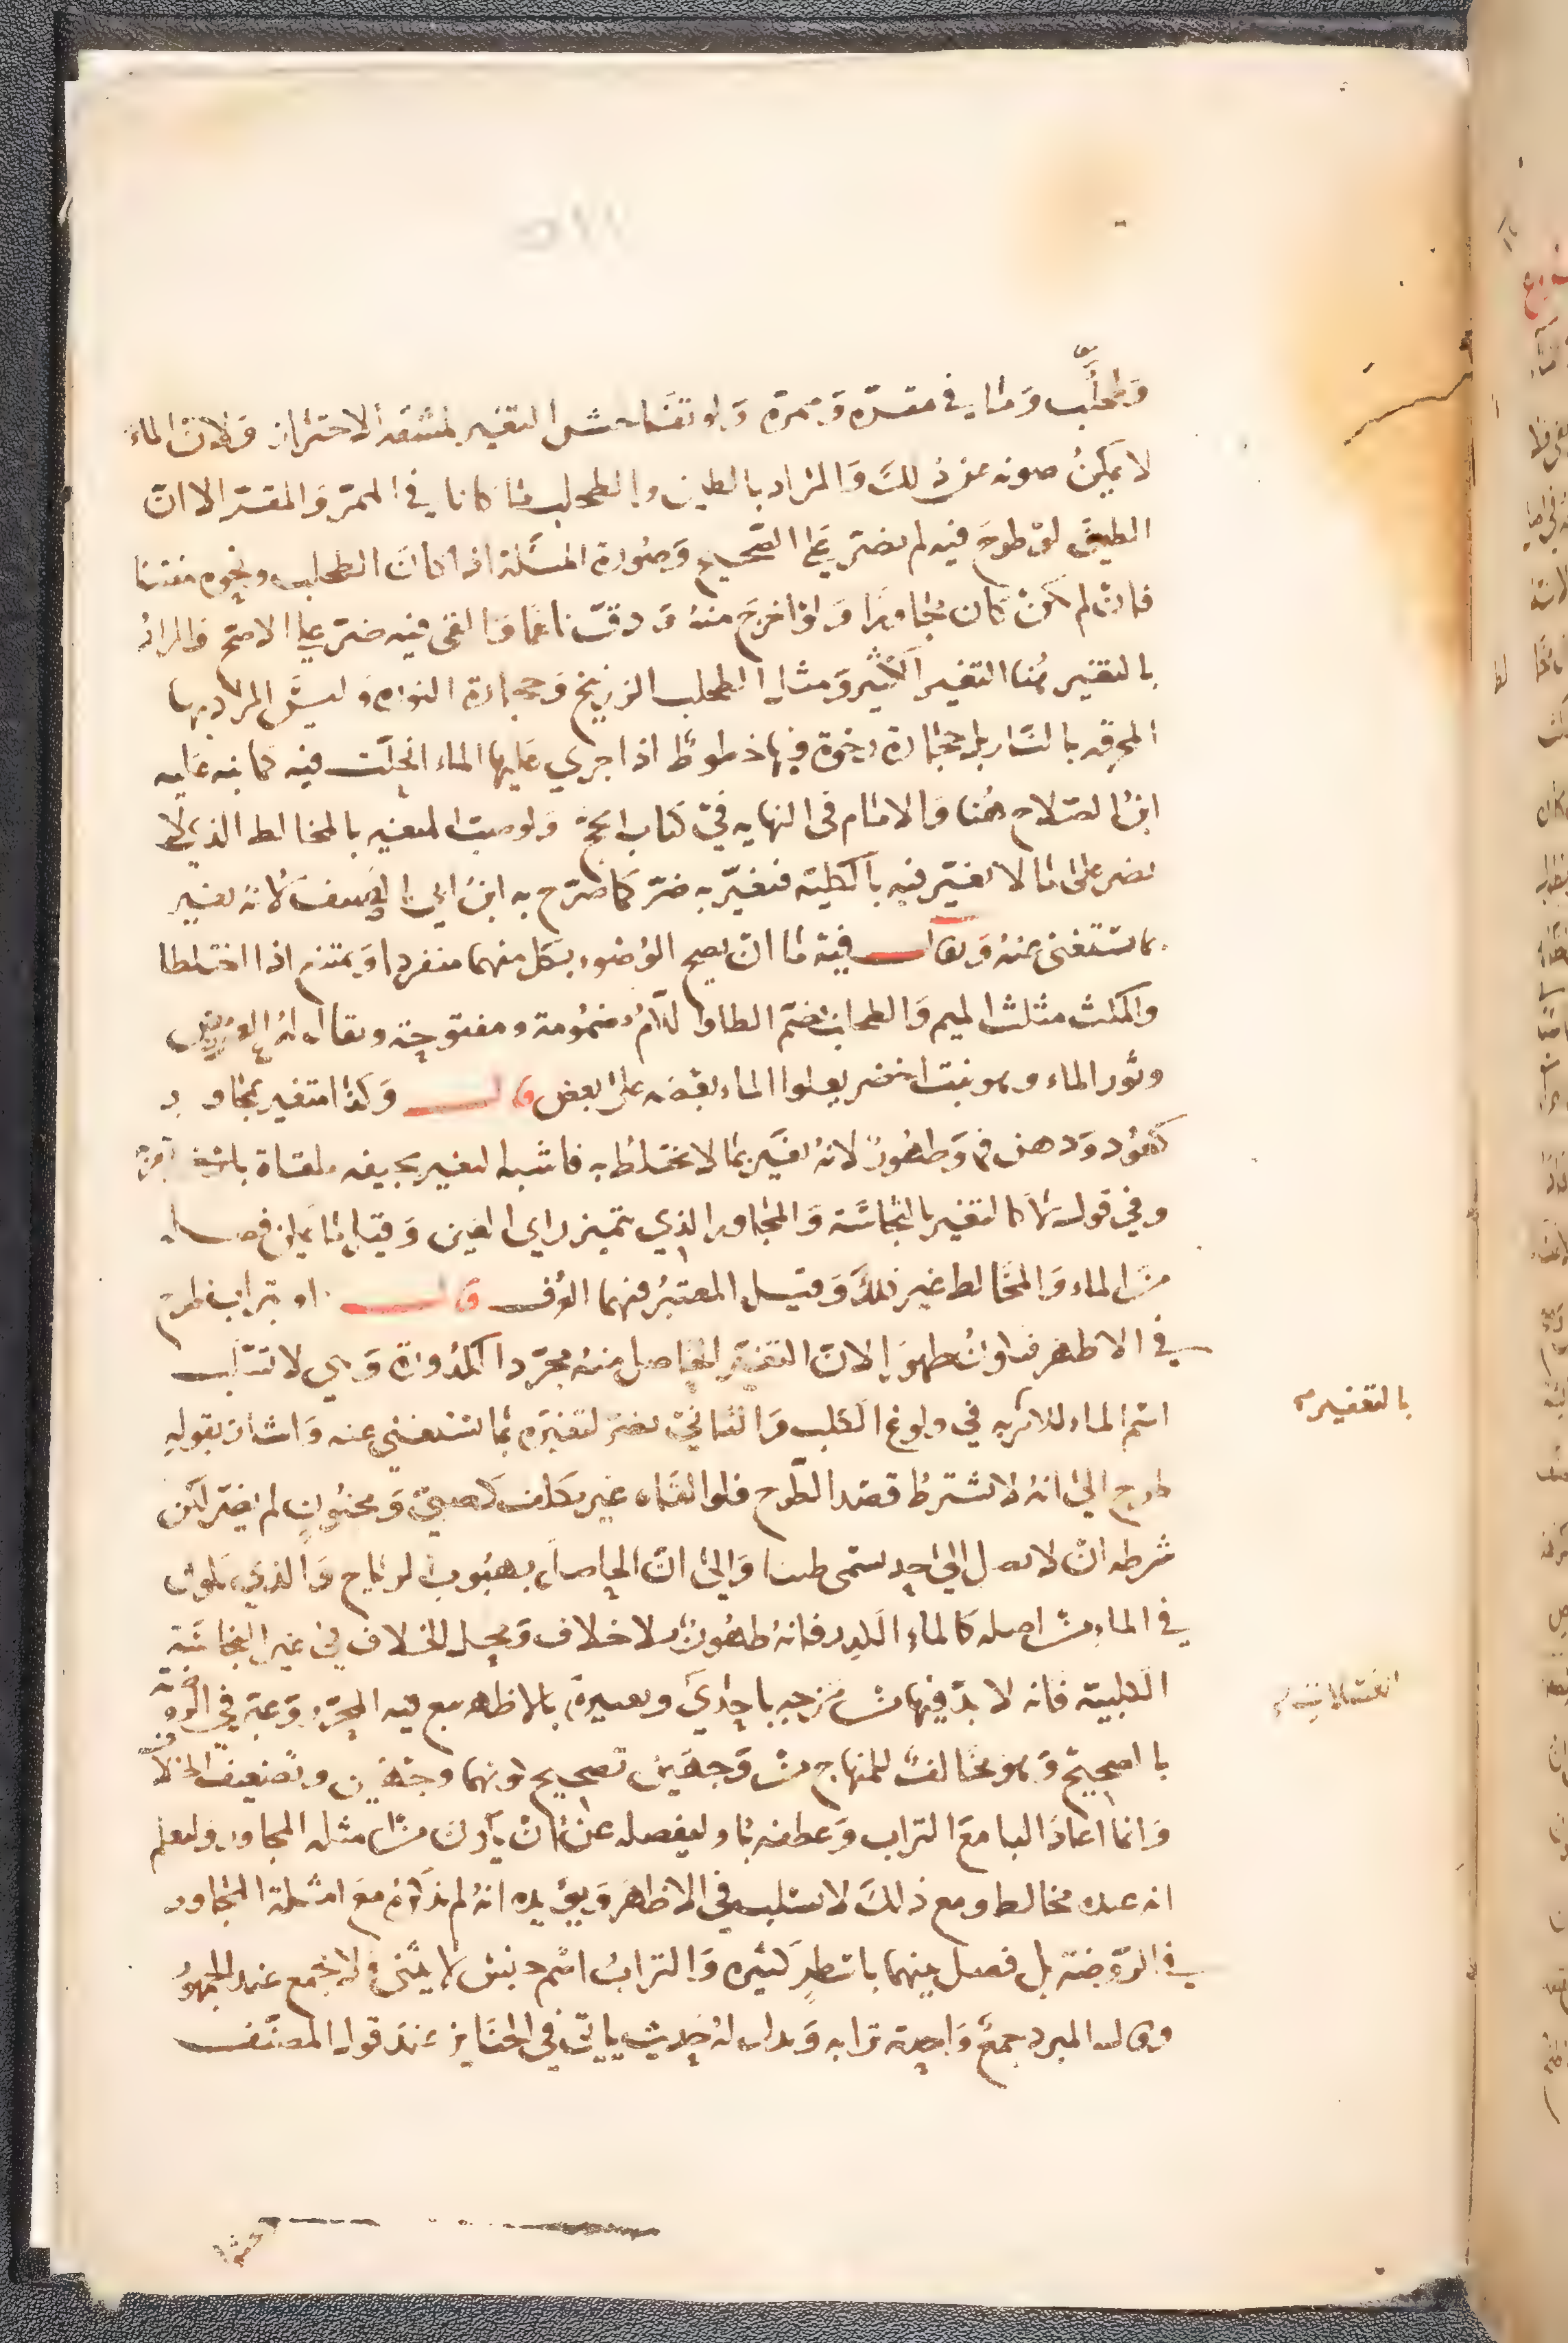 وطحلب وما في مقره وممره ولو تفاحش التغير لمشقة الاحتراز ولان الماء
لا يمكن صونه عن ذلك والمراد بالطين والطحلب ما كانا في الممر والمقر الا ان
الطين لو طرح فيه لم يضر على الصحيح وصورة المسئلة اذا كان الطحلب ونحوه متفتتا
فان لم يكن كان مجاورا ولو اخرج منه ودق ناعما والقى فيه ضر على الاصح والمراد
بالتغير هنا التغير الكثير ومثل الطحلب الزرنيخ وحجارة النورة وليس المراد بها
المحرقه بالنار بل حجارة رخوة فيها خطوط اذا جري عليها الماء انحلت فيه كما نبه عليه
ابن الصلاح هنا والامام في النهايه في كتاب الحج ولو صب المتغير بالمخالط الذي لا
يضر على ما لا تغير فيه بالكلية فتغير به ضر كما صرح به ابن ابي الصيف لانه تغير
بما يستغنى عنه ويقال فيه ما ان يصح الوضوء بكل منهما منفردا ويمتنع اذا اختلطا
والمكث مثلث الميم والطحلب بضم الطا واللام مضمومة ومفتوحة ويقال له العرمض
وثور الماء وهو نبت اخضر يعلوا الماء بعضه على بعض قال وكذا متغير بمجاور
كعود ودهن وطهور لانه تغير بما لا يختلط به فاشبه التغير بجيفه ملقاة بالشط
وفي قول لا كالتغير بالنجاسة والمجاور الذي يتميز راي العين وقيل ما يمكن فصله
من الماء والمخالط غير ذلك وقيل المعتبر فيهما العرف قال او تراب طرح
في الاظهر لان التغير الحاصل منه مجرد الكدورة وهي لا تسلب
اسم الماء للامر به في ولوغ الكلب والثاني يضر لتغيره بما يستغني عنه واشار بقوله
طرح الى انه لا يشترط قصد الطرح فلو القاه غير مكلف كصبي ومجنون لم يضر لكن
شرطه ان لا يصل الى حد يسمى طينا والى ان الحاصل بهبوب الرياح والذي يكون
في الماء من اصله كالماء الكدر فانه طهور بلا خلاف ومحل الخلاف في غير النجاسة
الكلبية فانه لا بد فيها من مزجه باحدي وتعبيره بالاظهر تبع فيه المحرر وعبر في الروضة
بالصحيح وهو مخالف للمنهاج من وجهين تصحيح كونهما وجهين وتضعيف الخلاف
وانما اعاد البا مع التراب وعطفه باو ليفصله عن ان يكون من امثلة المجاور وليعلم
انه عنده مخالط ومع ذلك لا يسلب في الاظهر ويؤيده انه لم يذكره مع امثلة المجاور
في الروضة بل فصل بينهما باسطر كثيره والتراب اسم جنس لا يثنى ولا يجمع عند الجمهور
وقال المبرد جمع واحده ترابه ويدل له حديث ياتي في الجنايز عند قول المصنف
بالتغير
الغسلات